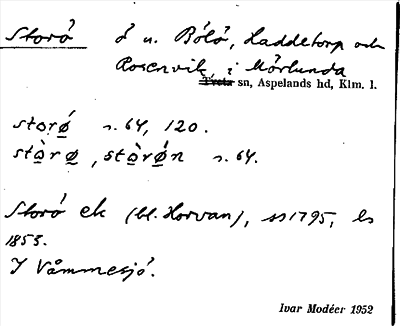 Storö ö u. Bölö, Laddetorp och
Rosenvik, i Mörlunda
Tveta sn, Aspelands hd, Klm. l.
storǿ s. 64, 120.
stòrø, stòrǿn s. 64.
Storö ek (bl. Horvan), ss 1795, ls
1853.
I Våmmesjö.
Ivar Modéer 1952